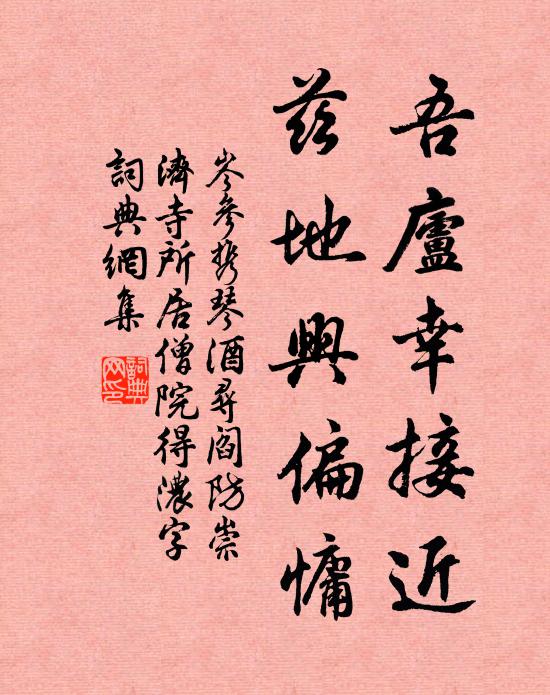 吾廬幸接近
茲地興偏慵
岑參攜琴酒尋閻防崇
濟寺所居僧院得濃字
詞典網集
詞典網印